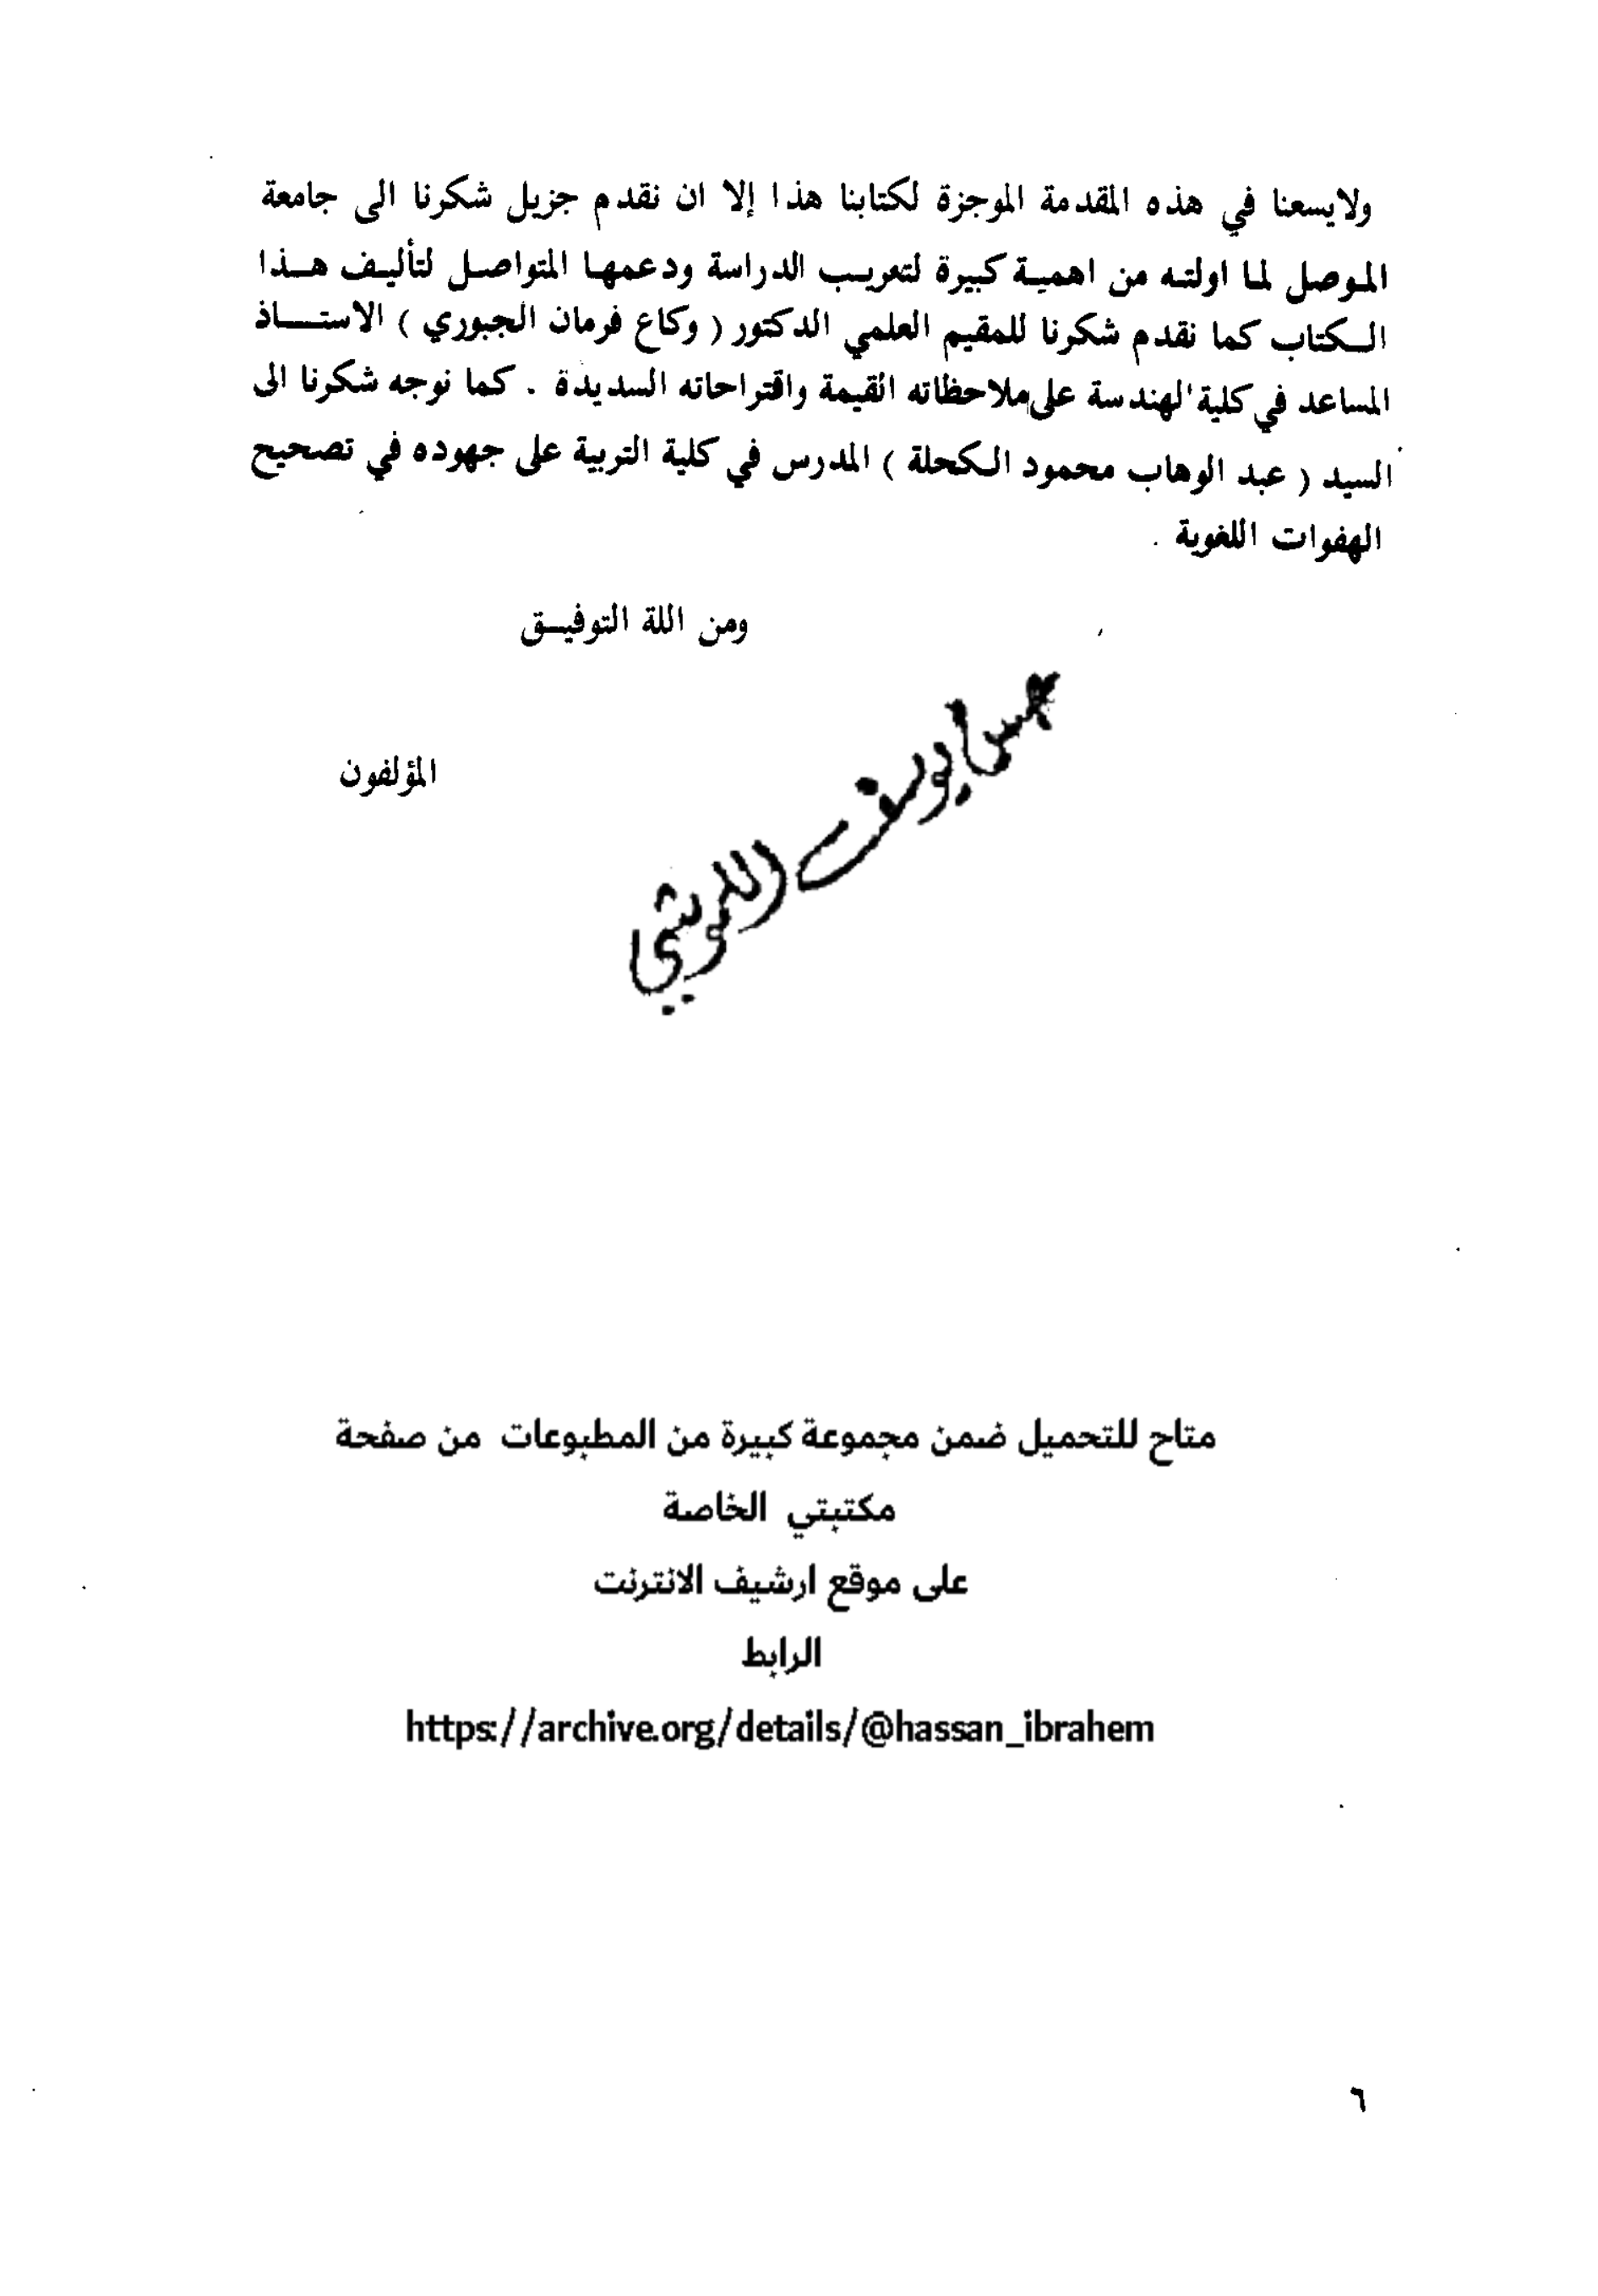 ولايسعنا في هذه المقدمة الموجزة لكتابنا هذا إلا ان نقدم جزيل شكرنا الى جامعة
الموصل لما اولته من اهمية كبيرة لتعريب الدراسة ودعمها المتواصل لتأليف هذا
الكتاب كما نقدم شكرنا للمقيم العلمي الدكتور ( وكاع فرمان الجبوري ) الاستاذ
المساعد في كلية الهندسة على ملاحظاته القيمة واقتراحاته السديدة . كما نوجه شكرنا الى
السيد ( عبد الوهاب محمود الكحلة ) المدرس في كلية التربية على جهوده في تصحيح
الهفوات اللغوية .
ومن اللة التوفيق
يوسف
المؤلفون
متاح للتحميل ضمن مجموعة كبيرة من المطبوعات من صفحة
مكتبتي الخاصة
على موقع ارشيف الانترنت
الرابط
https://archive.org/details/@hassan_ibrahem
٦